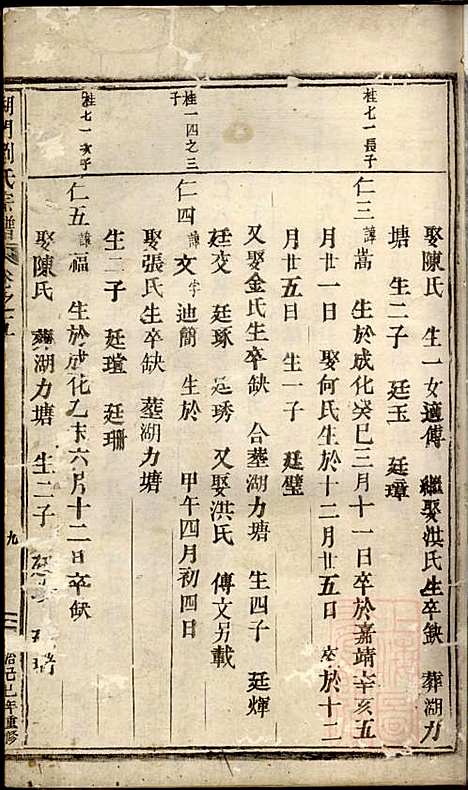 娶陳氏 生一女適傅 繼娶洪氏生卒缺 葬湖力
塘 生二子 廷玉 廷璋
桂七一長子
仁三 諱嵩 生於成化癸巳三月十一日卒於嘉靖辛亥五
月廿一日 娶何氏生於十二月廿五日 卒於十二
月廿五日 生一子 廷璧
又娶金氏生卒缺 合葬湖力塘 生四子 廷煇
廷文 廷琢 廷琇 又娶洪氏 傳文另載
桂一四之三子
仁四 諱文 字迪簡 生於 甲午四月初四日
娶張氏生卒缺 塟湖力塘
生二子 廷瑄 廷珊
桂七一次子
仁五 諱福 生於成化乙未六月十二日卒缺
娶陳氏 葬湖力塘 生二子
湖門劉氏宗譜 卷之五 九
治己巳年重修